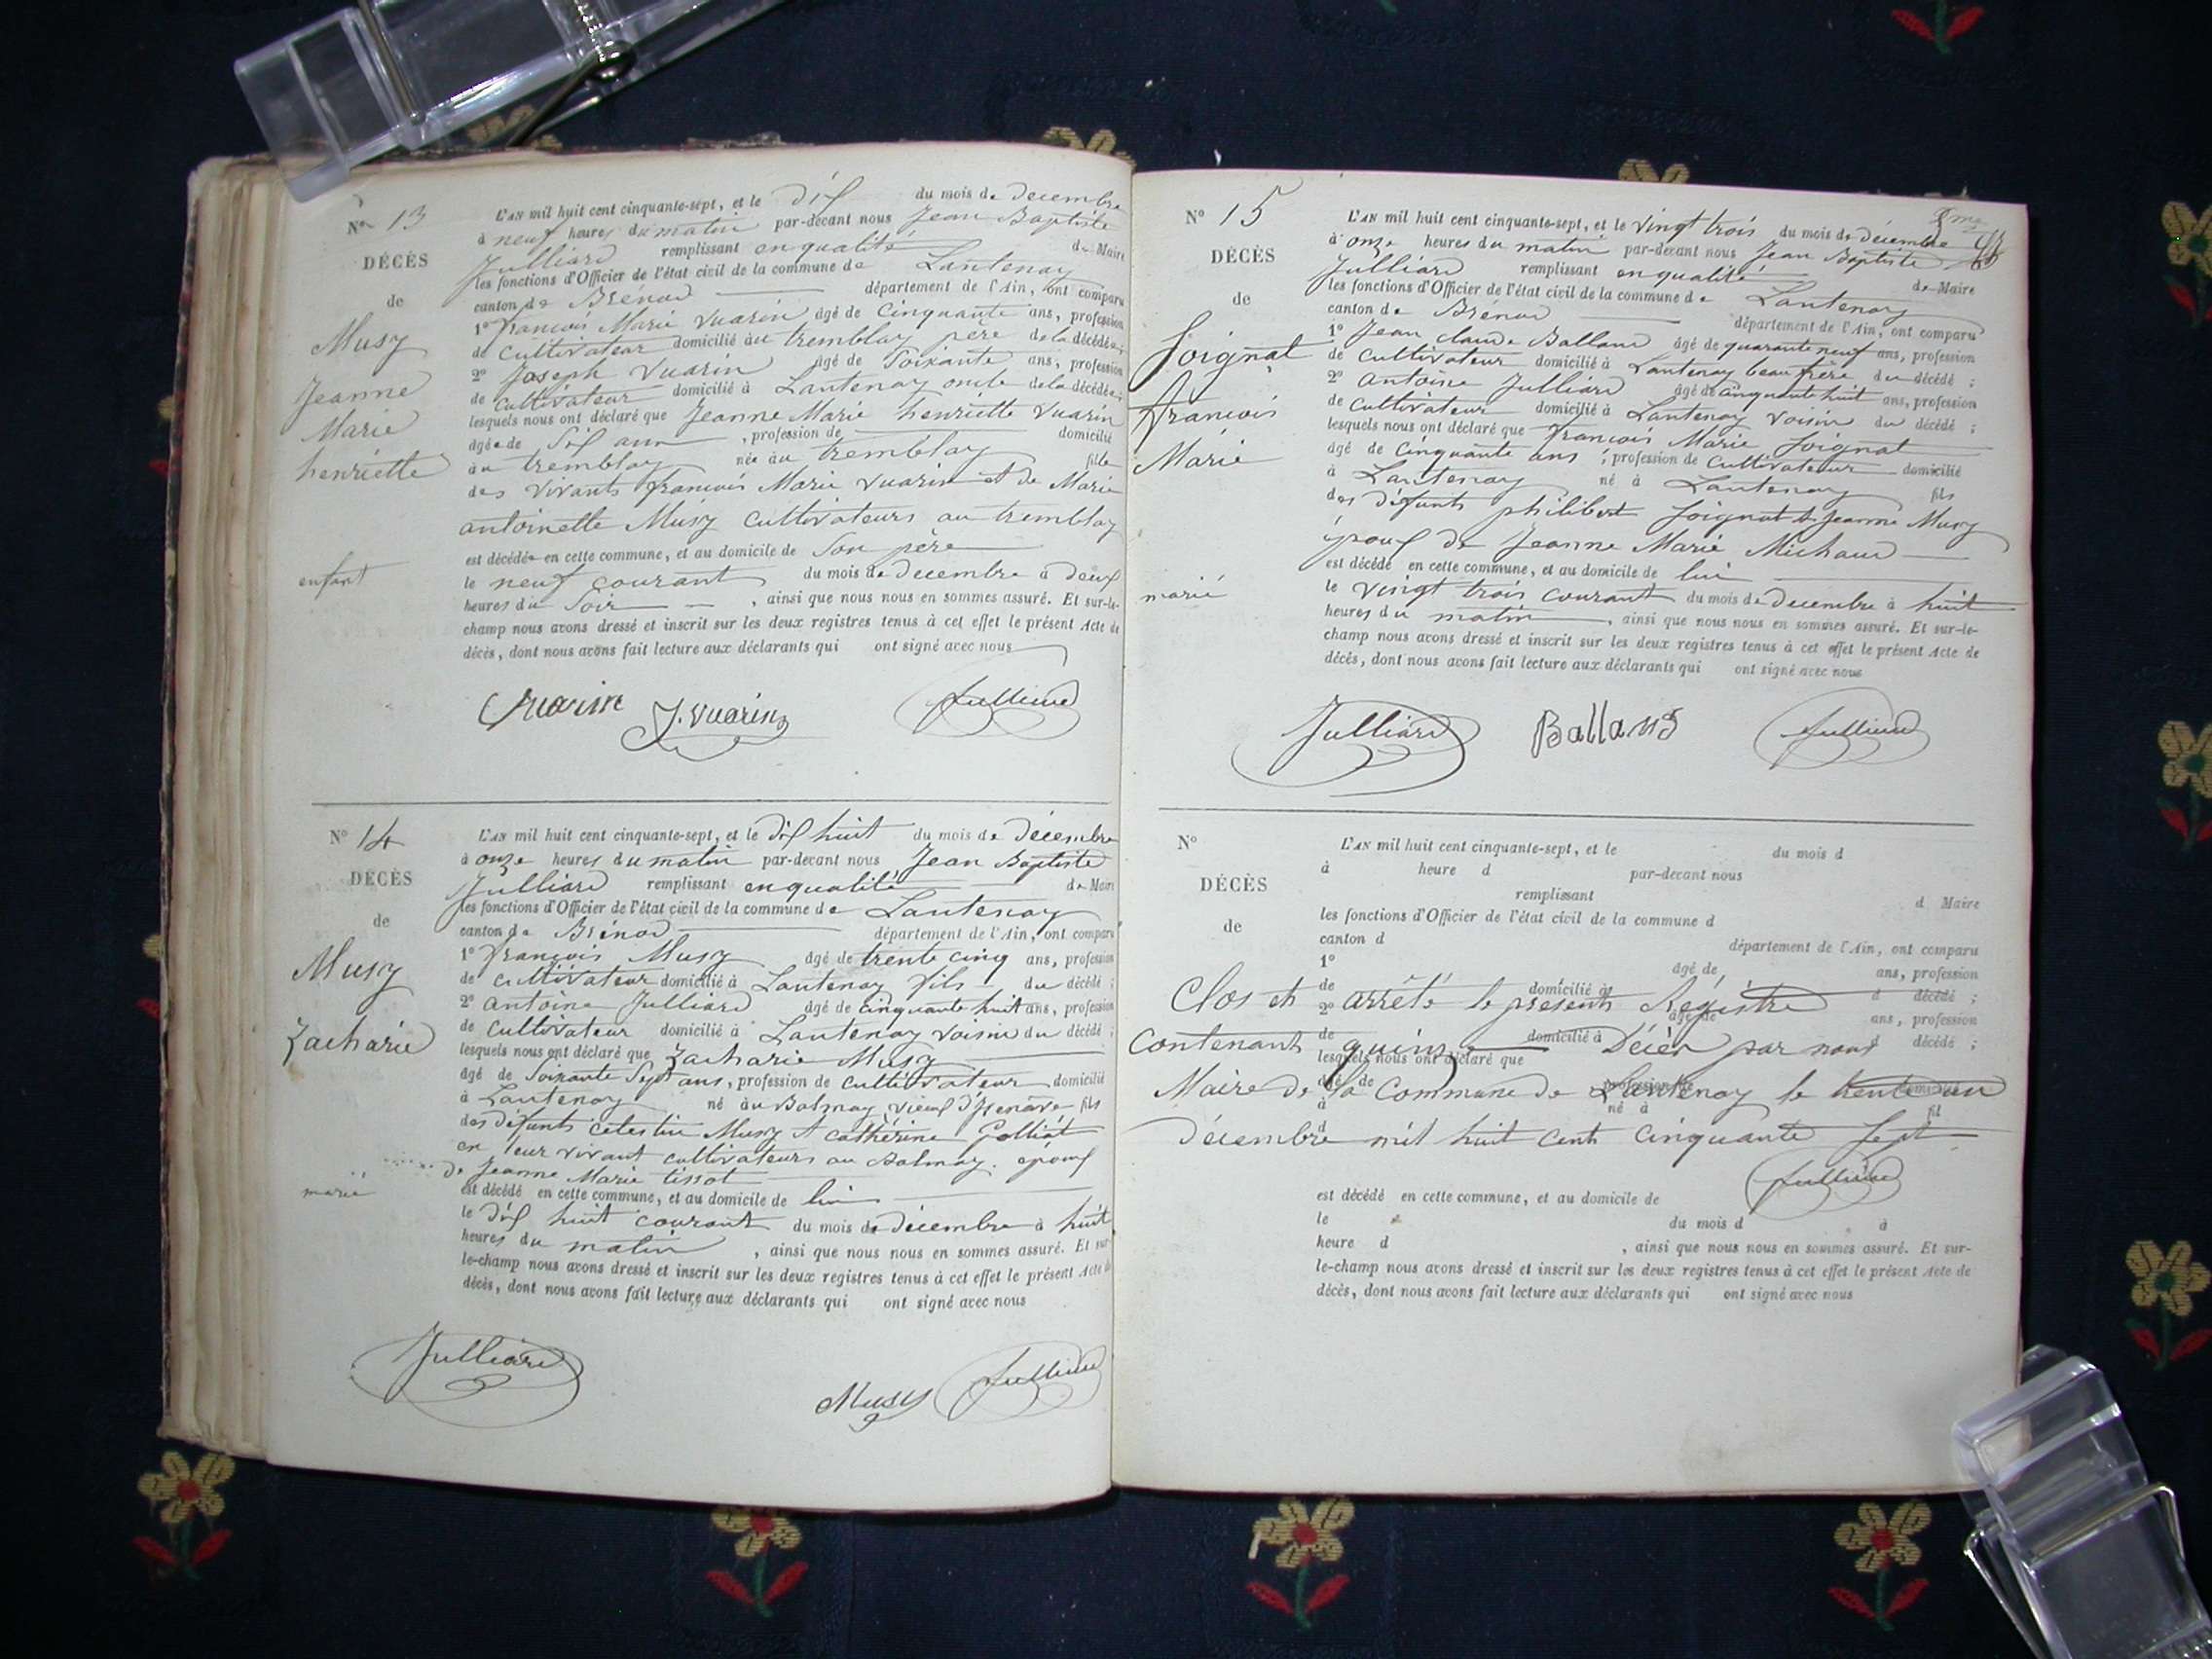 N° 13
DÉCÈS
de
Musy
Jeanne
Marie
henriette
enfant
L'AN mil huit cent cinquante-sept, et le dix du mois de decembre
à neuf heures du matin par-devant nous Jean Baptiste
Julliard remplissant en qualité de Maire
les fonctions d'Officier de l'état civil de la commune de Lantenay
canton de Brénod département de l'Ain, ont comparu
1° françois Marie Vuarin âgé de Cinquante ans, profession
de Cultivateur domicilié au tremblay père de la décédée
2° Joseph Vuarin âgé de Soixante ans, profession
de Cultivateur domicilié à Lantenay oncle de la décédée
lesquels nous ont déclaré que Jeanne Marie henriette Vuarin
âgée de Six ans , profession de domicilié
au tremblay née au tremblay fille
des vivants françois Marie Vuarin et de Marie
antoinette Musy Cultivateurs au tremblay
est décédée en cette commune, et au domicile de Son père
le neuf courant du mois de decembre à deux
heures du Soir , ainsi que nous nous en sommes assuré. Et sur-le-
champ nous avons dressé et inscrit sur les deux registres tenus à cet effet le présent Acte de
décès, dont nous avons fait lecture aux déclarants qui ont signé avec nous
Vuarin J. Vuarin Julliard
N° 14
DÉCÈS
de
Musy
Zacharie
marié
L'AN mil huit cent cinquante-sept, et le dix huit du mois de décembre
à onze heures du matin par-devant nous Jean Baptiste
Julliard remplissant en qualité de Maire
les fonctions d'Officier de l'état civil de la commune de Lantenay
canton de Brénod département de l'Ain, ont comparu
1° françois Musy âgé de trente cinq ans, profession
de cultivateur domicilié à Lantenay fils du décédé ;
2° antoine Julliard âgé de cinquante huit ans, profession
de Cultivateur domicilié à Lantenay voisin du décédé ;
lesquels nous ont déclaré que Zacharie Musy
âgé de Soixante Sept ans, profession de cultivateur domicilié
à Lantenay né au Balmay, vieux d'Izenave fils
des défunts celestin Musy et cathérine Golliat
en leur vivant cultivateurs au Balmay. epoux
de Jeanne Marie tissot
est décédé en cette commune, et au domicile de lui
le dix huit courant du mois de décembre à huit
heures du matin , ainsi que nous nous en sommes assuré. Et sur-
le-champ nous avons dressé et inscrit sur les deux registres tenus à cet effet le présent Acte de
décès, dont nous avons fait lecture aux déclarants qui ont signé avec nous
Julliard Musy Julliard
N° 15
DÉCÈS
de
Soignat
françois
Marie
marié
L'AN mil huit cent cinquante-sept, et le vingt trois du mois de décembre
à onze heures du matin par-devant nous Jean Baptiste
Julliard remplissant en qualité de Maire
les fonctions d'Officier de l'état civil de la commune de Lantenay
canton de Brénod département de l'Ain, ont comparu
1° Jean claude Balland âgé de quarante neuf ans, profession
de Cultivateur domicilié à Lantenay beau frère du décédé ;
2° antoine Julliard âgé de cinquante huit ans, profession
de cultivateur domicilié à Lantenay voisin du décédé ;
lesquels nous ont déclaré que françois Marie Soignat
âgé de Cinquante ans , profession de Cultivateur domicilié
à Lantenay né à Lantenay fils
des défunts philibert Soignat & Jeanne Musy
époux de Jeanne Marie Michaud
est décédé en cette commune, et au domicile de lui
le vingt trois courant du mois de decembre à huit
heures du matin , ainsi que nous nous en sommes assuré. Et sur-le-
champ nous avons dressé et inscrit sur les deux registres tenus à cet effet le présent Acte de
décès, dont nous avons fait lecture aux déclarants qui ont signé avec nous
Julliard Balland Julliard
N°
DÉCÈS
de
L'AN mil huit cent cinquante-sept, et le du mois d
à heure d par-devant nous
remplissant d Maire
les fonctions d'Officier de l'état civil de la commune d
canton d département de l'Ain, ont comparu
1° âgé de ans, profession
de domicilié à d décédé ;
Clos et arrêté le présent Régistre
2° âgé de ans, profession
de domicilié à d décédé ;
Contenant quinze Décès par nous
lesquels nous ont déclaré que
âgé de profession de domicilié
Maire de la Commune de Lantenay le trente un
à né à fil
d
Décembre mil huit cent cinquante Sept
Julliard
est décédé en cette commune, et au domicile de
le du mois d à
heure d , ainsi que nous nous en sommes assuré. Et sur-
le-champ nous avons dressé et inscrit sur les deux registres tenus à cet effet le présent Acte de
décès, dont nous avons fait lecture aux déclarants qui ont signé avec nous